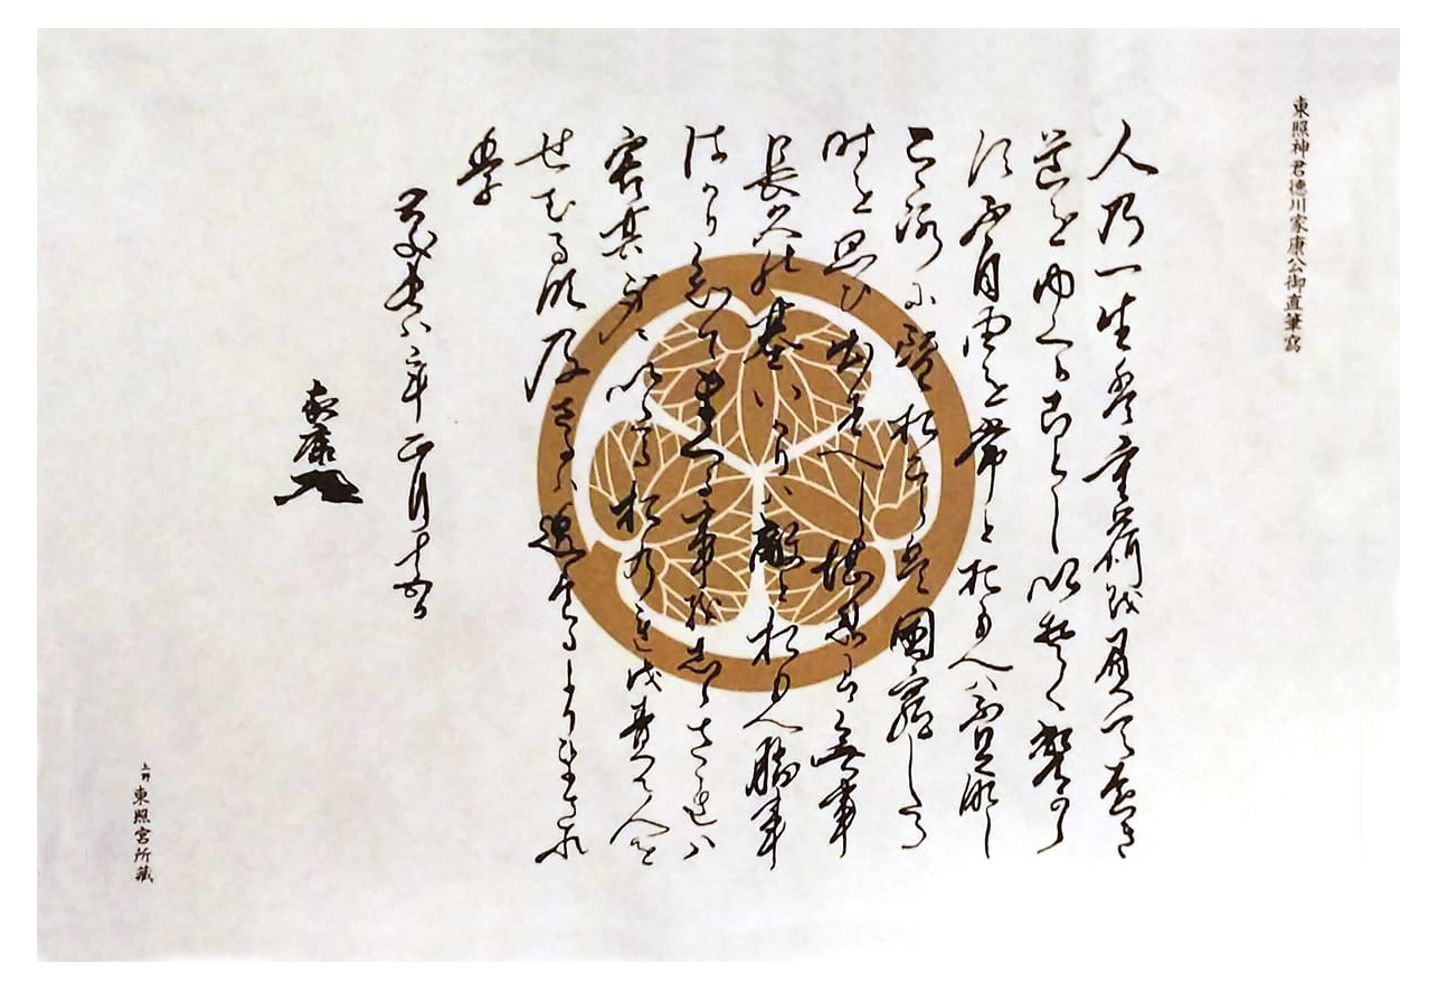 東照神君徳川家康公御直筆写
人乃一生盤重荷越負て遠き
道をゆくかことし以楚く遍から
須不自由を常とおもへハ不足那し
こゝろ尓望おこら盤困窮したる
時を思ひ出すへし堪忍ハ無事
長久能基いかりハ敵とおもへ勝事
はかり知てまくる事越しらされハ
害其身にいたるおのれ越責て人を
せむる那及さるハ過たるよりまされ
慶長八年正月十五日
家康
上野東照宮所蔵